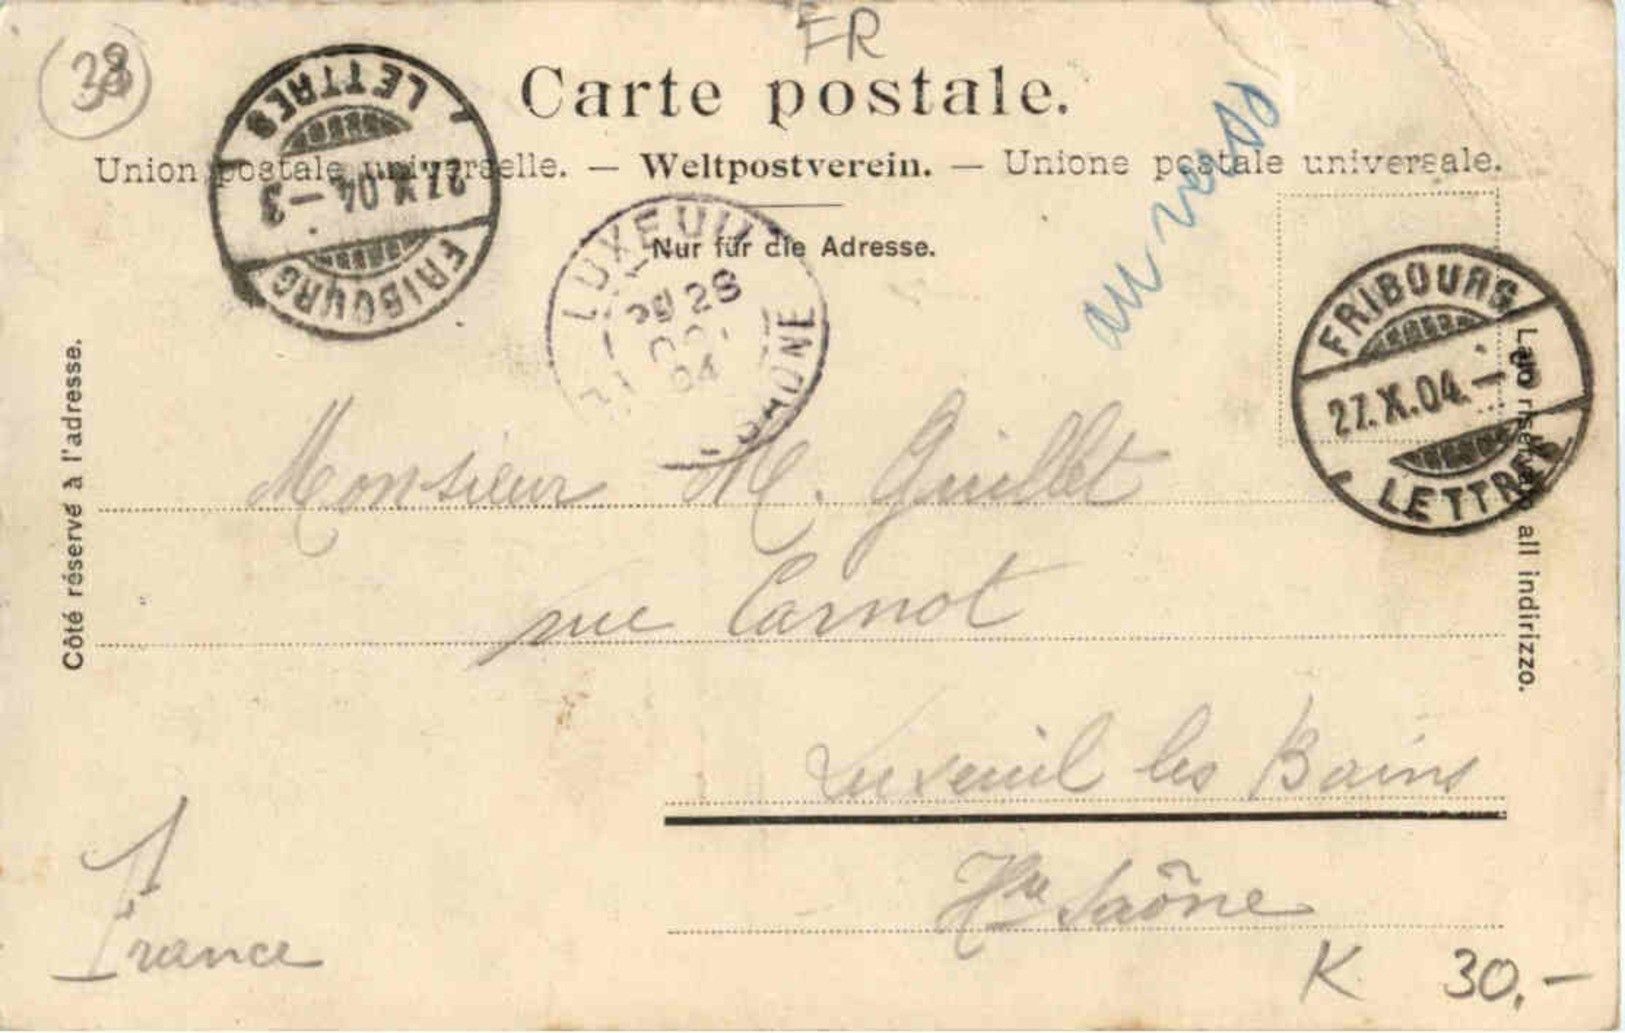 FR
Carte postale.
Union postale universelle. — Weltpostverein. — Unione postale universale.
Nur für die Adresse.
LETTRES
27.X.04.—3
FRIBOURG
LUXEUIL
28
04
SAONE
au verso
FRIBOURG
27.X.04.—
LETTRES
Côté réservé à l'adresse.
Lato riservato all indirizzo.
Monsieur M. Guillet
rue Carnot
Luxeuil les Bains
Hte Saône
France
K 30,-